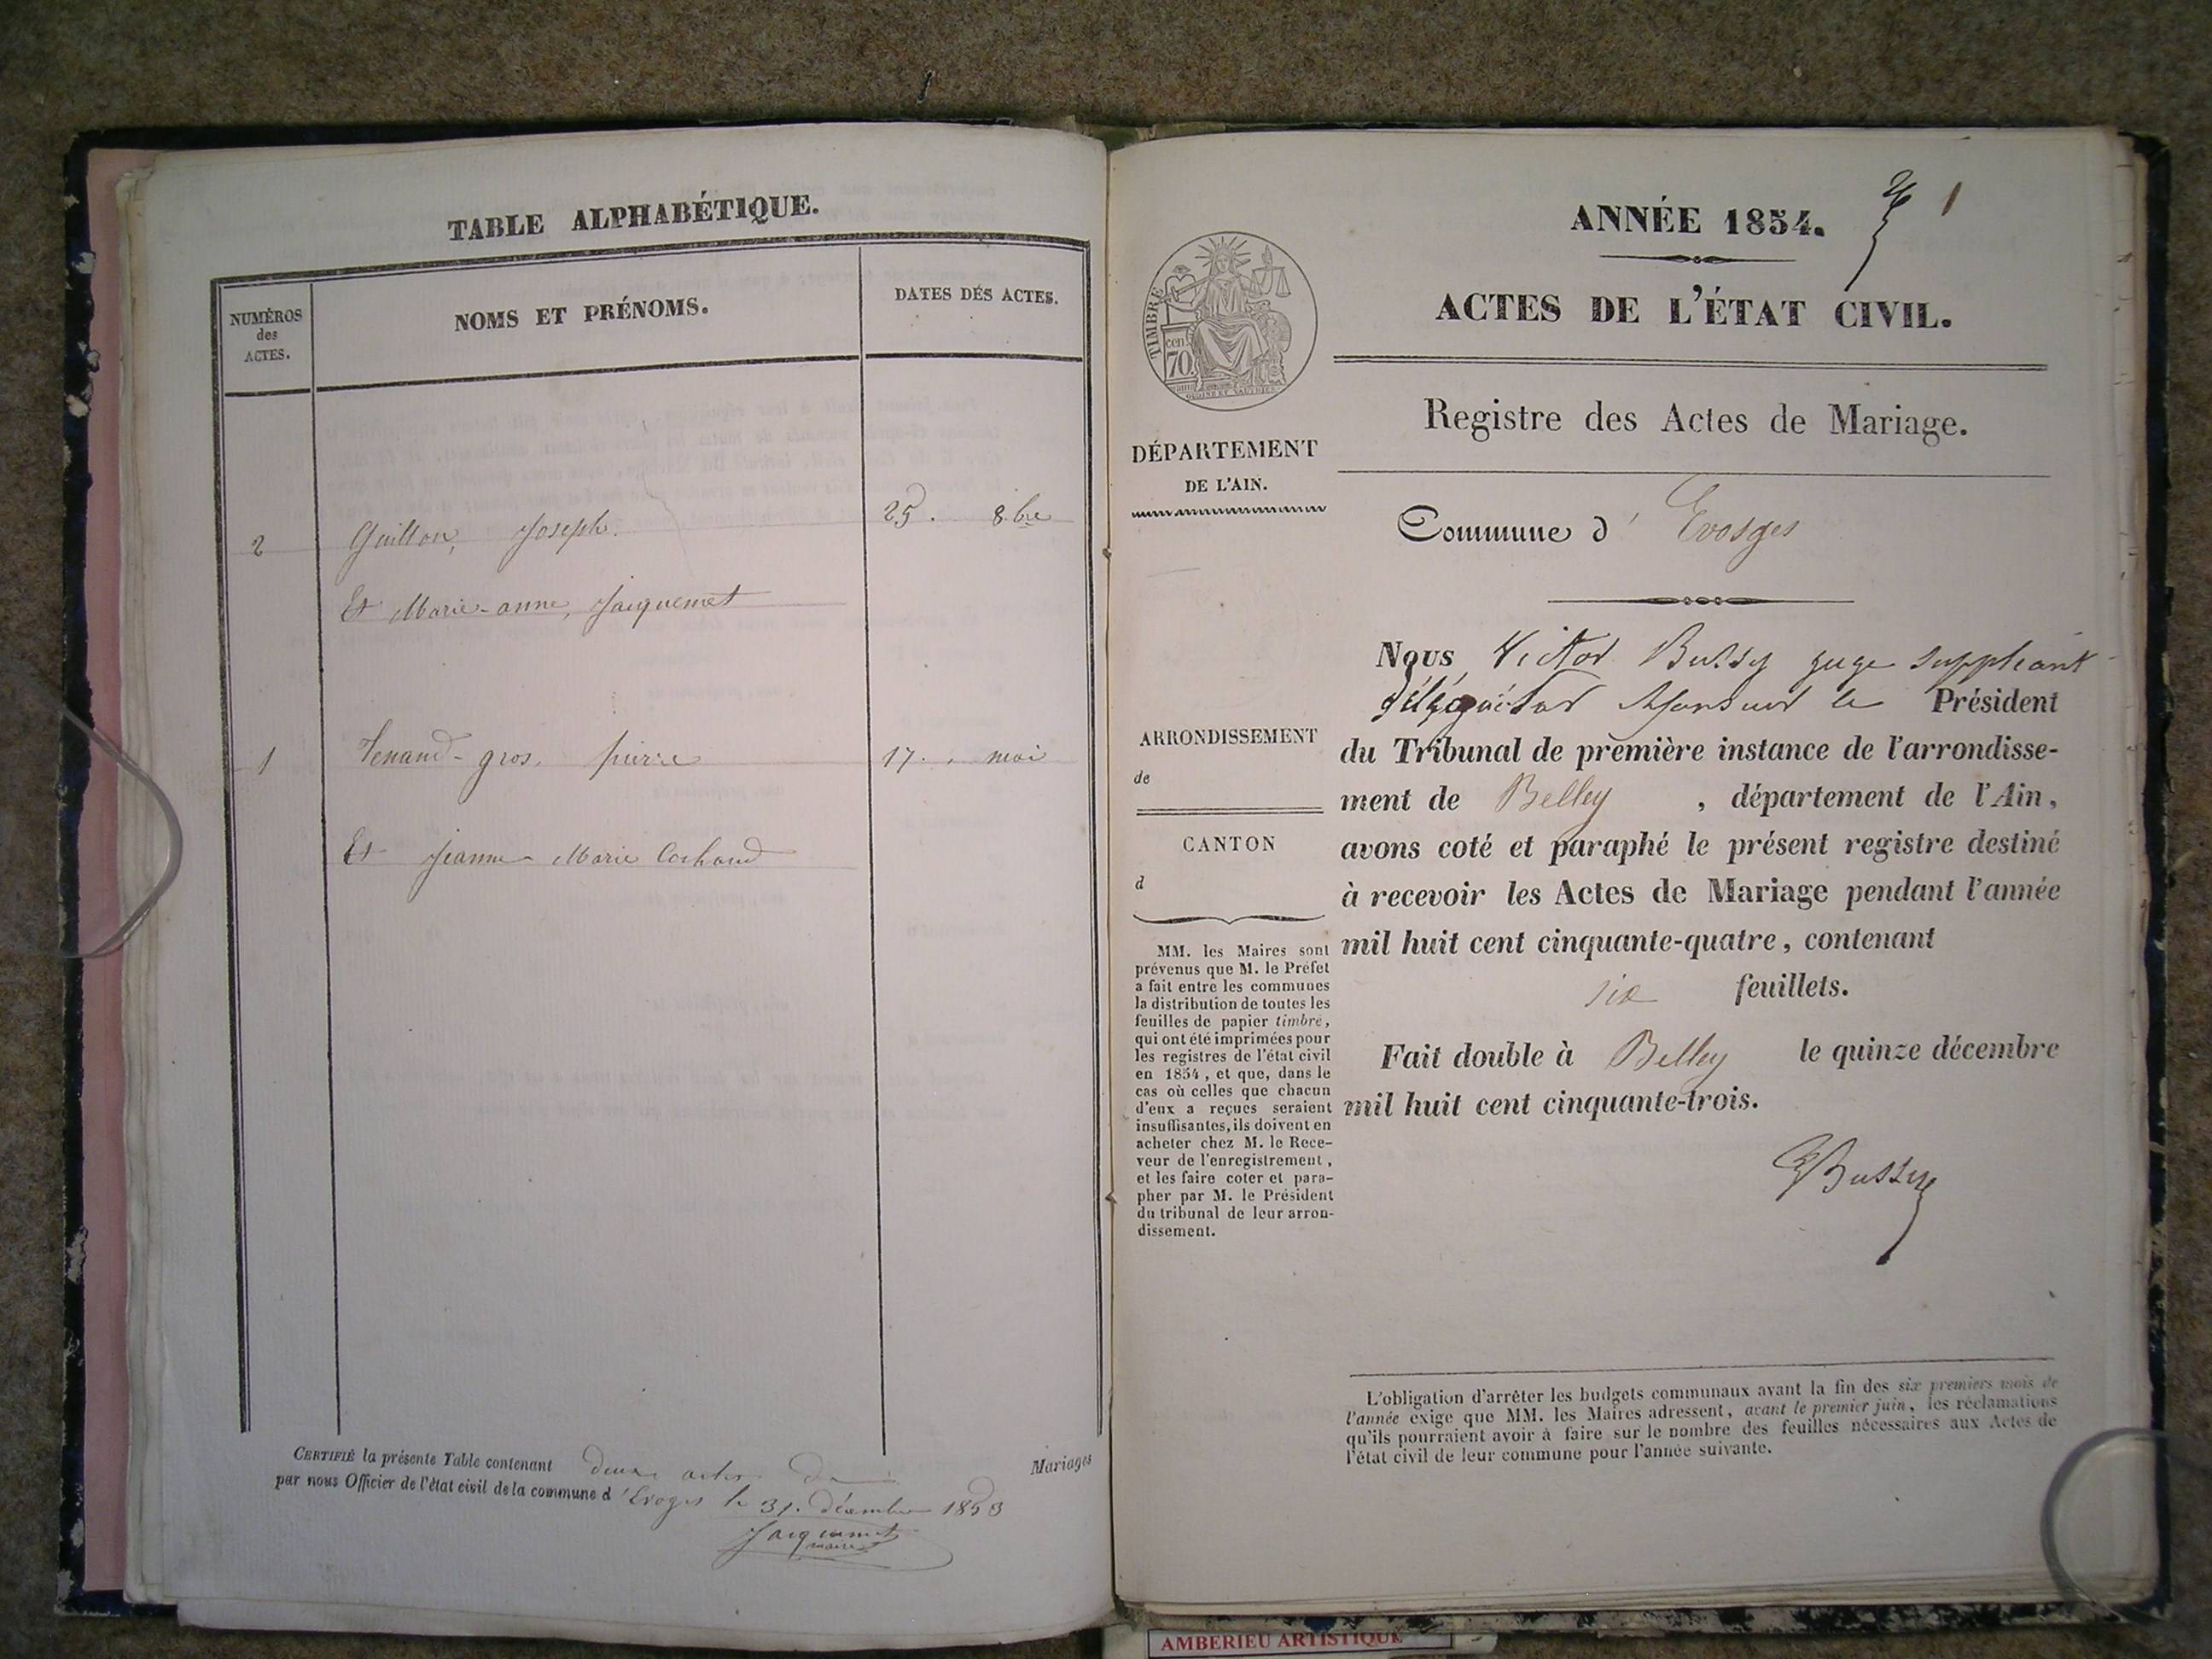 TABLE ALPHABÉTIQUE.
NUMÉROS
des
ACTES.
NOMS ET PRÉNOMS.
DATES DES ACTES.
2 Guillon, Joseph. 25. 8.bre
Et Marie-anne, Jacquemet
1 Tenand-gros, pierre 17. mai
Et Jeanne-Marie Cochand
CERTIFIÉ la présente Table contenant deux actes de Mariages
par nous Officier de l'état civil de la commune d'Evoges le 31. décembre 1853
Jacquemet
maire
ANNÉE 1854.
1
ACTES DE L'ÉTAT CIVIL.
TIMBRE
cen.
70.
Registre des Actes de Mariage.
DÉPARTEMENT
DE L'AIN.
Commune d' Evosges
Nous Victor Bussy juge suppléant
délégué par Monsieur le Président
du Tribunal de première instance de l'arrondisse-
ment de Belley, département de l'Ain,
avons coté et paraphé le présent registre destiné
à recevoir les Actes de Mariage pendant l'année
mil huit cent cinquante-quatre, contenant
six feuillets.
Fait double à Belley le quinze décembre
mil huit cent cinquante-trois.
Bussy
ARRONDISSEMENT
de
CANTON
d
MM. les Maires sont
prévenus que M. le Préfet
a fait entre les communes
la distribution de toutes les
feuilles de papier timbré,
qui ont été imprimées pour
les registres de l'état civil
en 1854, et que, dans le
cas où celles que chacun
d'eux a reçues seraient
insuffisantes, ils doivent en
acheter chez M. le Rece-
veur de l'enregistrement,
et les faire coter et para-
pher par M. le Président
du tribunal de leur arron-
dissement.
L'obligation d'arrêter les budgets communaux avant la fin des six premiers mois de
l'année exige que MM. les Maires adressent, avant le premier juin, les réclamations
qu'ils pourraient avoir à faire sur le nombre des feuilles nécessaires aux Actes de
l'état civil de leur commune pour l'année suivante.
AMBERIEU ARTISTIQUE